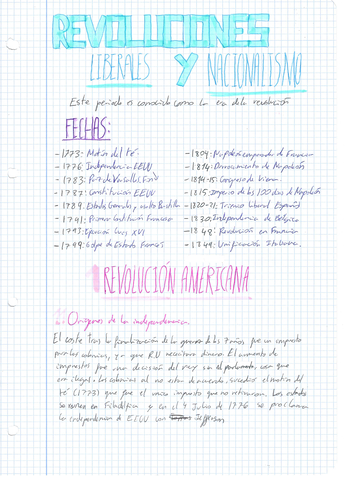 REVOLUCIONES
LIBERALES Y NACIONALISMO
Este periodo es conocido como la era de la revolución
FECHAS:
-1773: Motín del té
-1776: Independencia EEUU
-1783: Paz de Versalles
-1787: Constitución EEUU
-1789: Estados Generales y asalto Bastilla
-1791: Primera Constitución Francesa
-1793: Ejecución Luis XVI
-1799: Golpe de Estado
-1804: Napoleón emperador de Francia
-1814: Derrocamiento de Napoleón
-1814-15: Congreso de Viena
-1815: Imperio de los 100 días de Napoleón
-1820-21: Trienio liberal Español
-1830: Independencia de Bélgica
-1848: Revolución en Francia
Unificación Italiana
REVOLUCIÓN AMERICANA
Orígenes de la independencia
El coste tras la finalización de la guerra de los 7 años fue un impuesto
para las colonias, ya que R.U necesitaba dinero. El aumento de
impuestos fue una decisión del rey sin el parlamento, así que
era ilegal. Las colonias al no estar de acuerdo, sucedió el motín del
té (1773) que fue el único impuesto que no retiraron. Los
se reúnen en Filadelfia y en el 4 Julio de 1776 se proclama
la independencia de EEUU con Jefferson